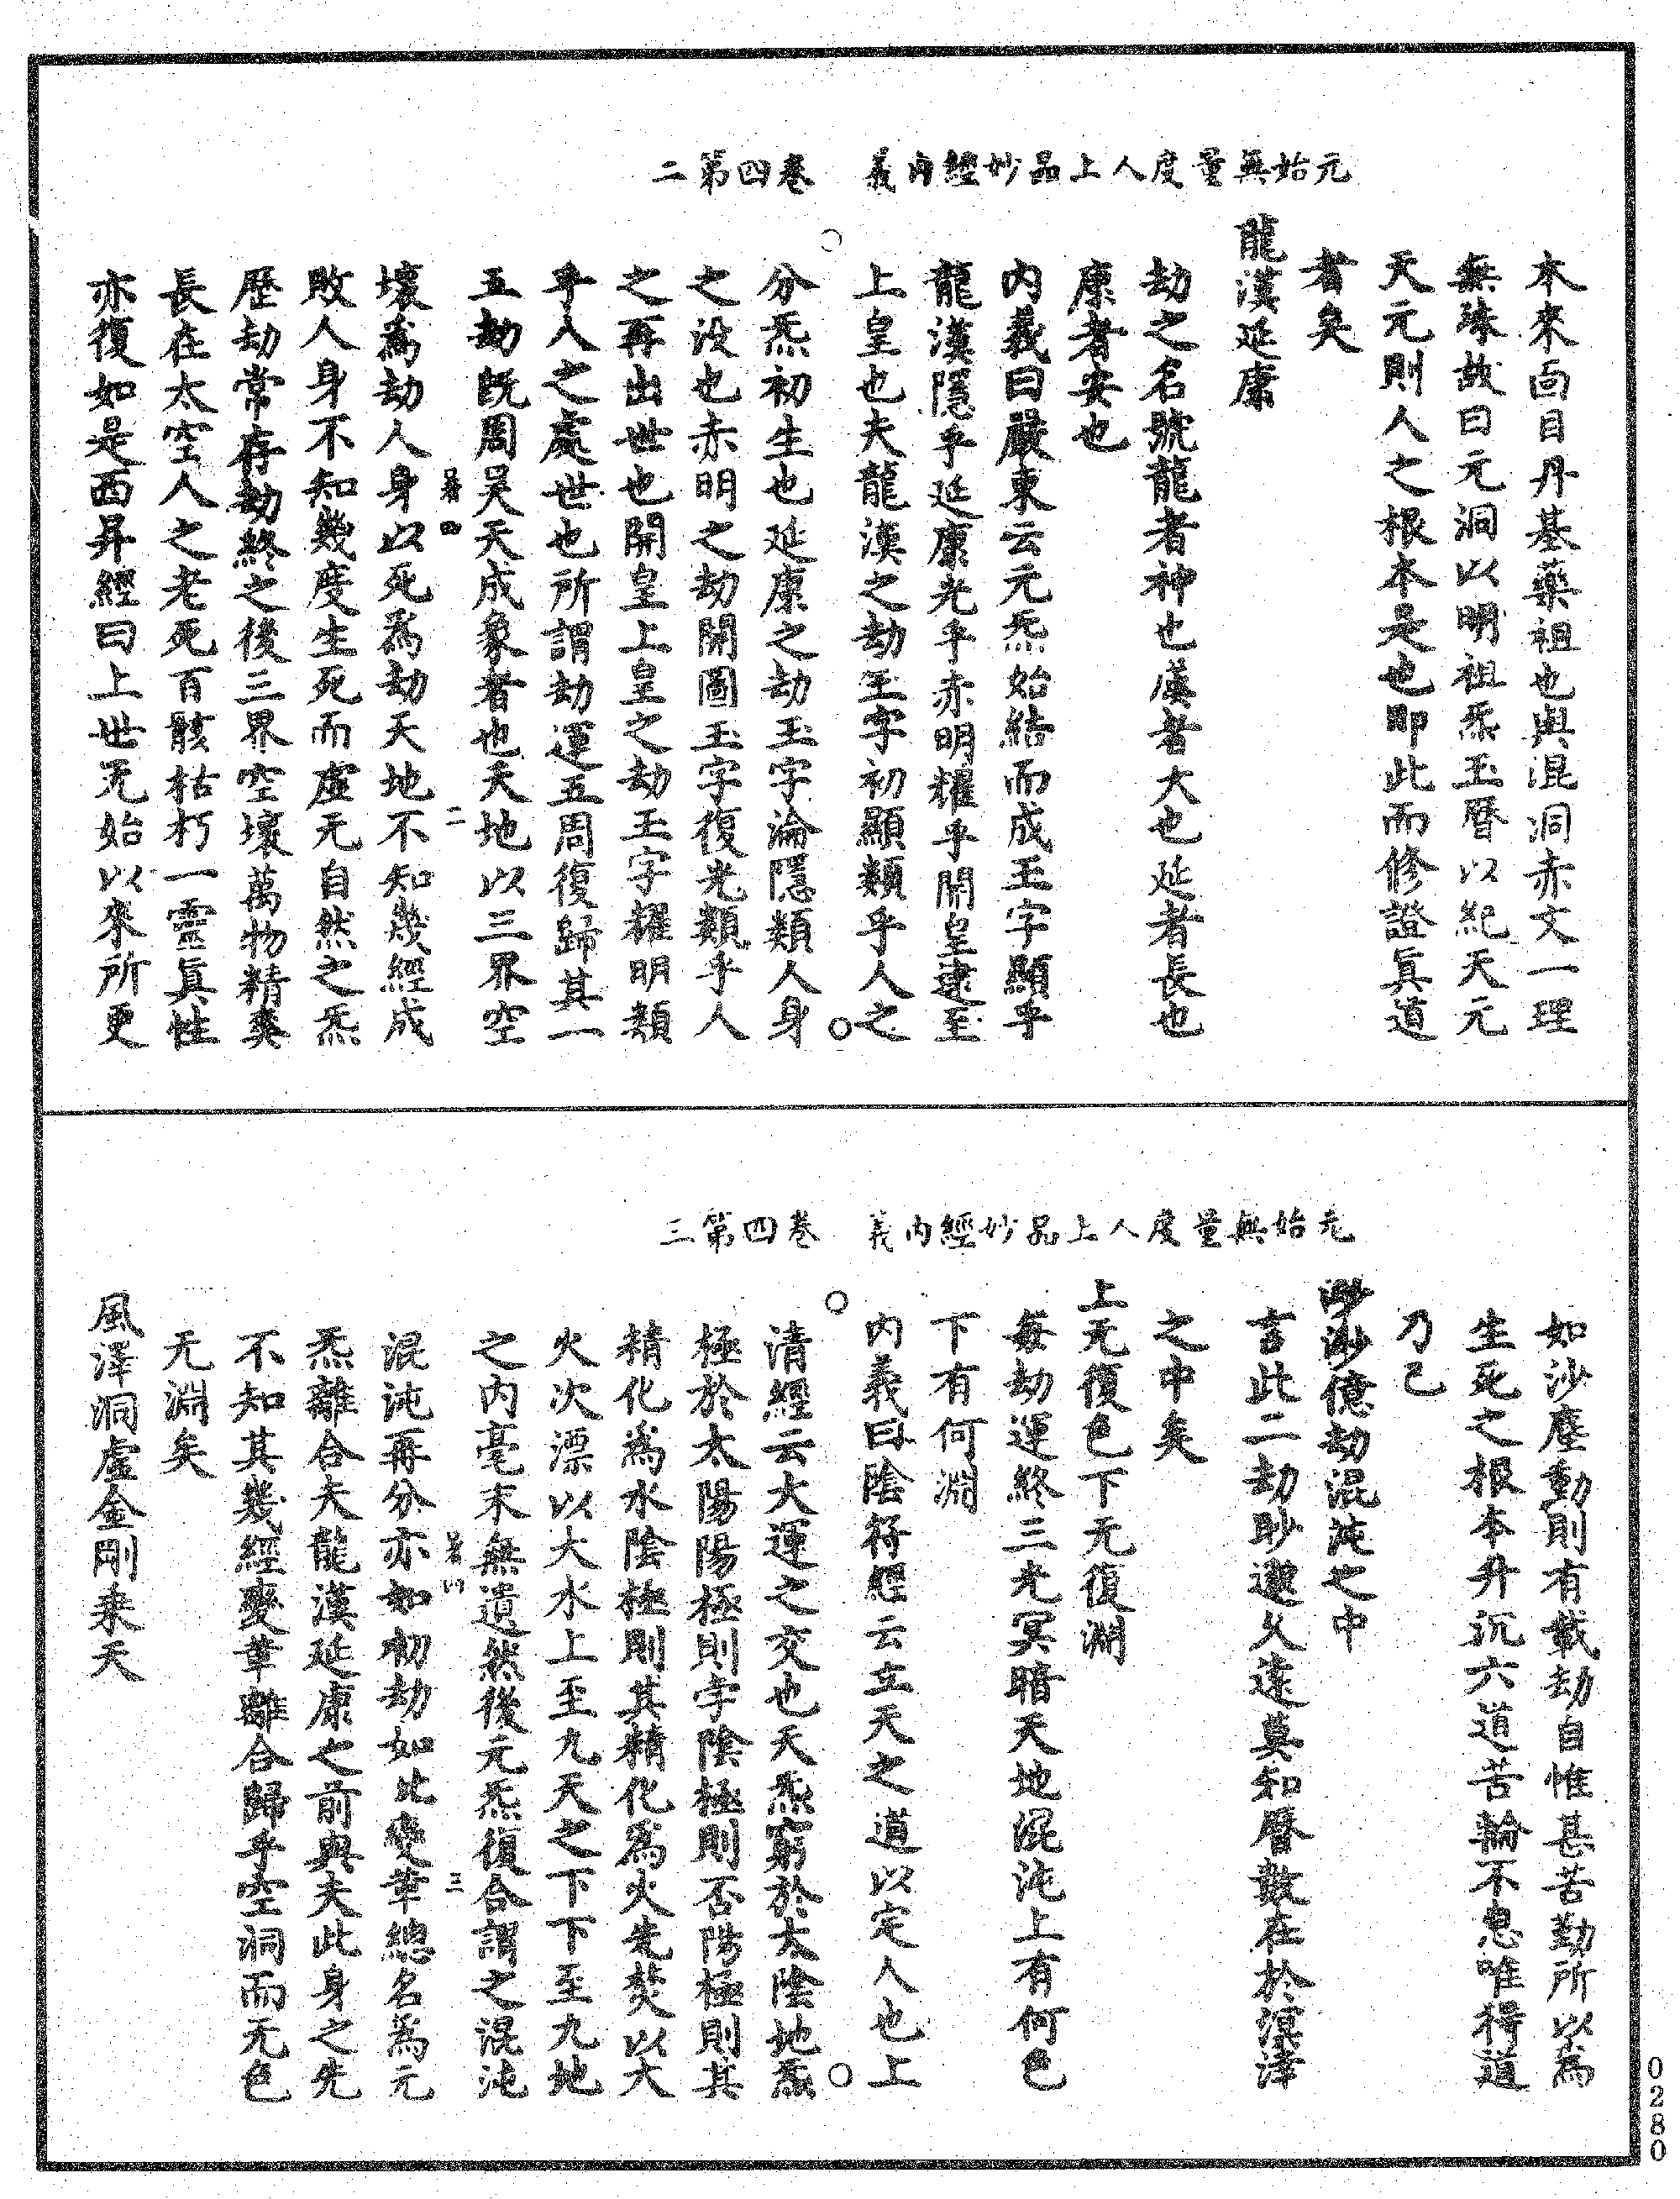 元始無量度人上品妙經內義　卷四第二
本來面目丹基藥祖也與混洞赤文一理
無殊故曰元洞以明祖炁玉曆以紀天元
天元則人之根本是也即此而修證真道
者矣
龍漢延康
劫之名號龍者神也漢者大也延者長也
康者安也
內義曰嚴東云元炁始結而成玉字顯乎
龍漢隱乎延康光乎赤明耀乎開皇逮至
上皇也夫龍漢之劫玉字初顯類乎人之
分炁初生也延康之劫玉字淪隱類人身
之没也赤明之劫開圖玉字復光類乎人
之再出世也開皇上皇之劫玉字耀明類
乎人之處世也所謂劫運五周復歸其一
五劫旣周昊天成象者也天地以三界空
四
二
壞為劫人身以死為劫天地不知幾經成
敗人身不知幾度生死而虛无自然之炁
歷劫常存劫終之後三界空壞萬物精爽
長在太空人之老死百骸枯朽一靈真性
亦復如是西昇經曰上世无始以來所更
元始無量度人上品妙經內義　卷四第三
如沙塵動則有載劫自惟甚苦勤所以為
生死之根本升沉六道苦輪不息唯得道
乃已
渺渺億劫混沌之中
言此二劫眇邈久遠莫知曆數在於溟涬
之中矣
上无復色下无復淵
每劫運終三光冥暗天地混沌上有何色
下有何淵
內義曰陰符經云立天之道以定人也上
清經云大運之交也天炁窮於太陰地炁
極於太陽陽極則孛陰極則否陽極則其
精化為水陰極則其精化為火先焚以大
火次漂以大水上至九天之下下至九地
之內毫末無遺然後元炁復合謂之混沌
四
三
混沌再分亦如初劫如此變革總名為元
炁離合夫龍漢延康之前與夫此身之先
不知其幾經變革離合歸乎空洞而无色
无淵矣
風澤洞虛金剛乘天
0280